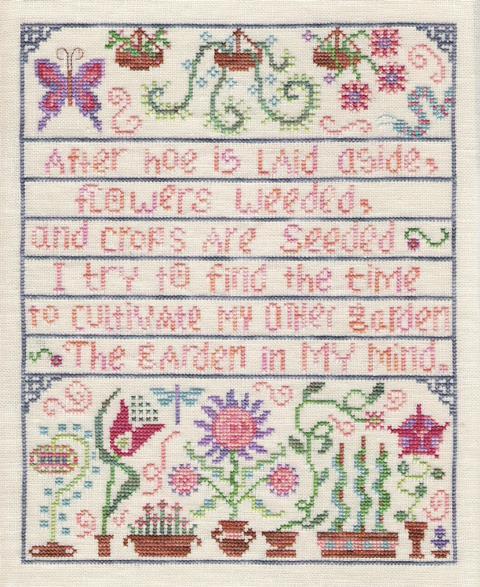 After hoe is LAid aside,
flowers weeded,
and crops Are Seeded
I try tO find the time
to cultivAte my OTHer garden
The gArden in MY mind.